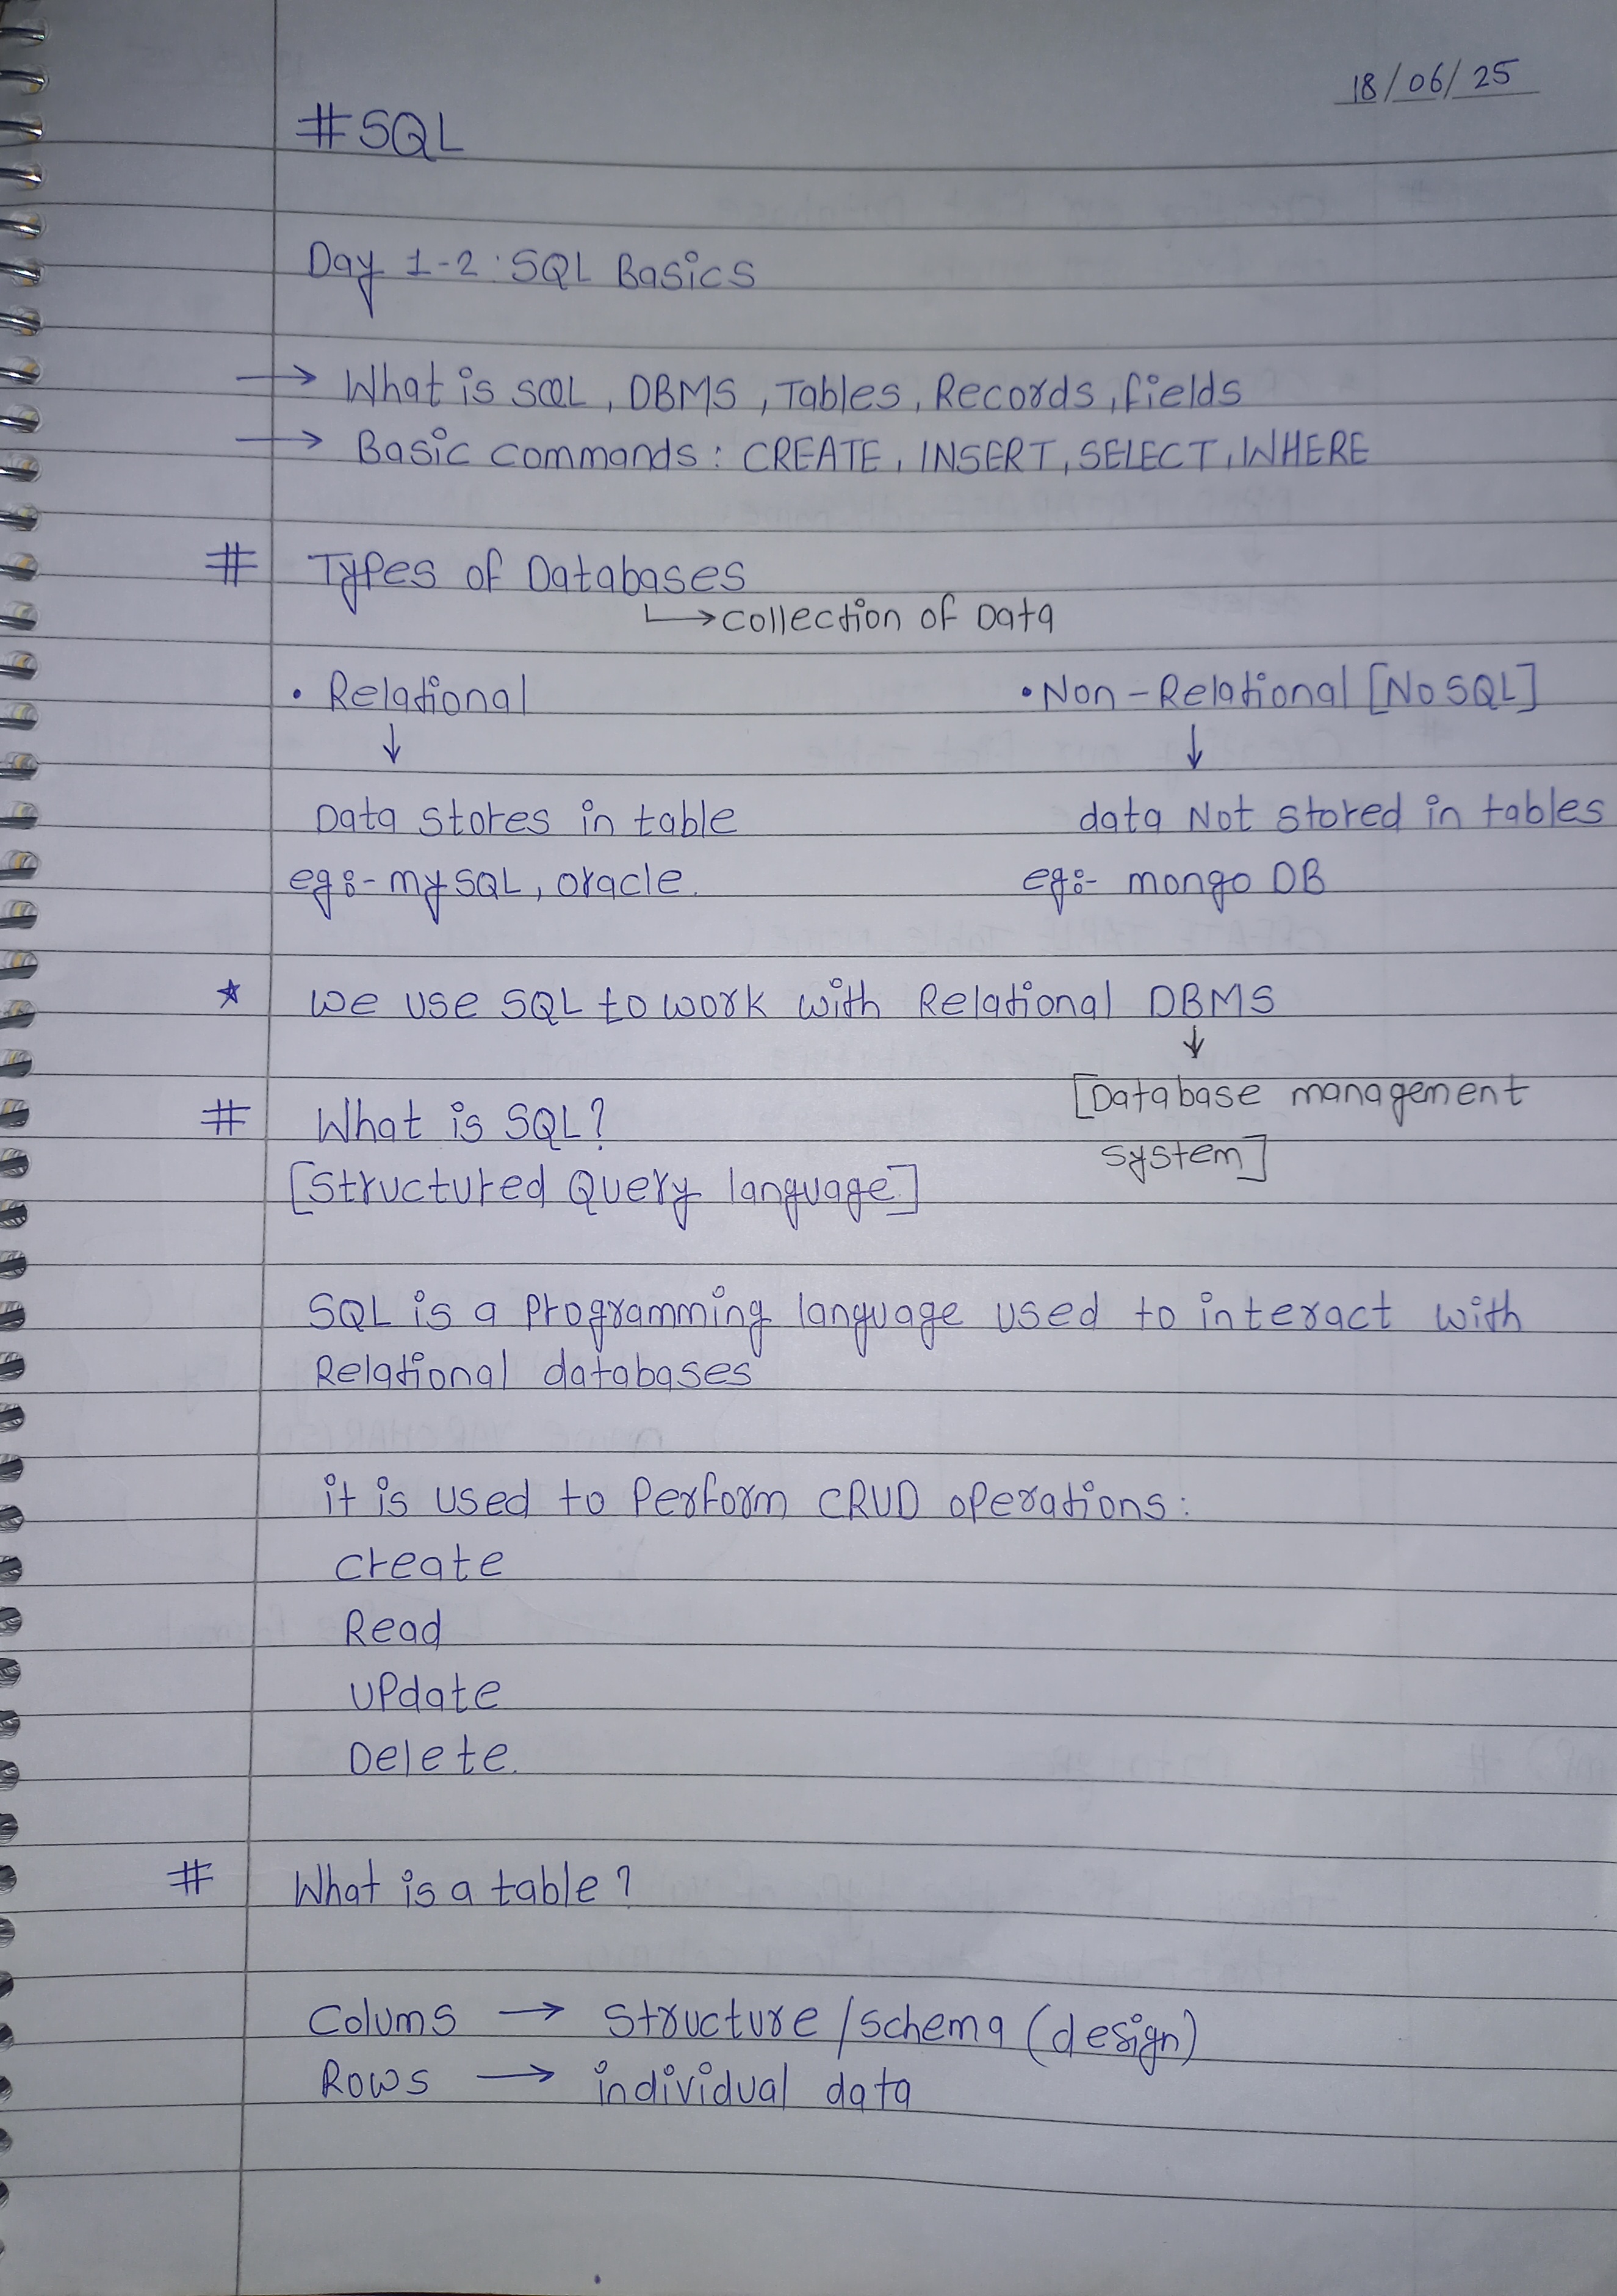 18/06/25
#SQL
Day 1-2: SQL Basics
→ What is SQL, DBMS, Tables, Records, fields
→ Basic commands: CREATE, INSERT, SELECT, WHERE
# Types of Databases
↳ collection of Data
• Relational • Non-Relational [NoSQL]
↓ ↓
Data stores in table data Not stored in tables
eg:- mySQL, oracle. eg:- mongo DB
★ we use SQL to work with Relational DBMS
↓
[Database management
system]
# What is SQL?
[Structured Query language]
SQL is a programming language used to interact with
Relational databases
it is used to perform CRUD operations:
create
Read
update
Delete.
# What is a table?
Colums → structure/schema (design)
Rows → individual data